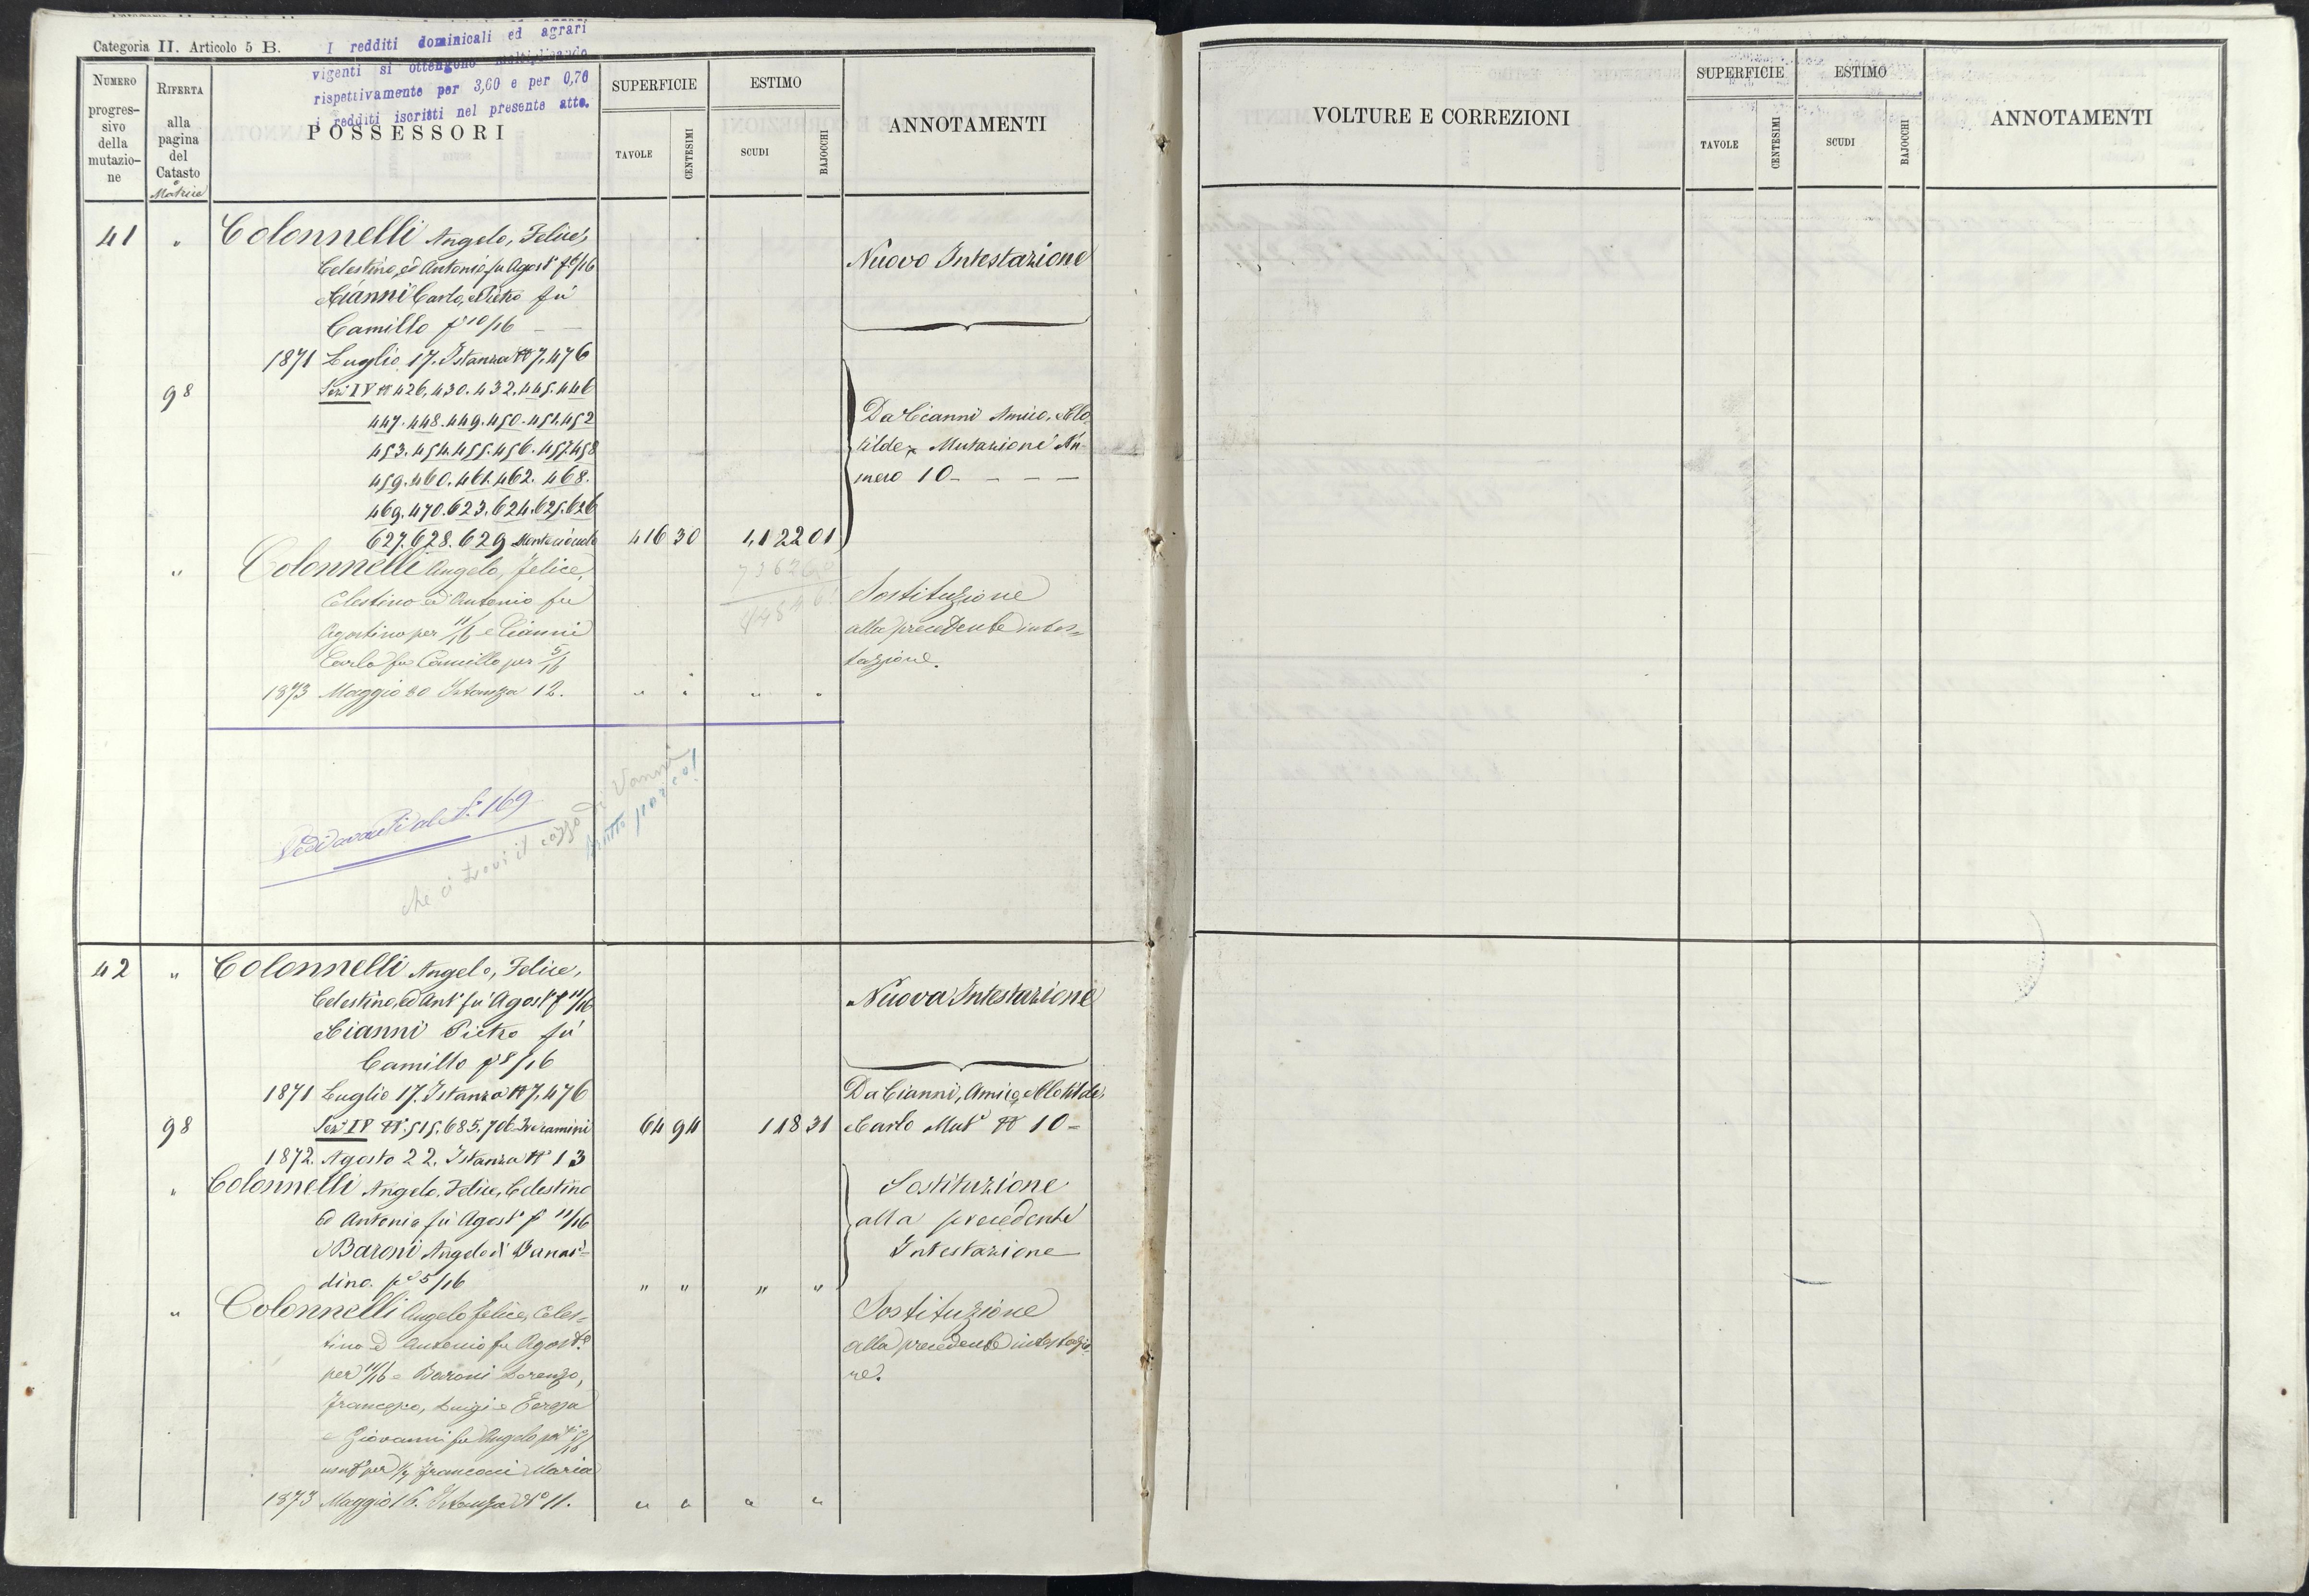 Categoria II. Articolo 5 B.
I redditi dominicali ed agrari
vigenti si ottengono moltiplicando
rispettivamente per 3,60 e per 0,70
i redditi iscritti nel presente atto.
NUMERO progres- sivo della mutazio- ne
RIFERTA alla pagina del Catasto Matrice
POSSESSORI
SUPERFICIE
TAVOLE CENTESIMI
ESTIMO
SCUDI BAJOCCHI
ANNOTAMENTI
41 " Colonnelli Angelo, Felice,
Celestino, ed Antonio fu Agost° p 6/16
Cianni Carlo, e Pietro fu
Camillo p 10/16 — —
Nuovo Intestazione
1871 Luglio 17. Istanza N° 7,476
98 Sez. IV N 426, 430. 432. 445. 446
447. 448. 449. 450. 451. 452
453. 454. 455. 456. 457. 458
459. 460. 461. 462. 468.
469. 470. 623. 624. 625. 626
627. 628. 629 416 30 4,122 01
Da Cianni Amico, Clo
tilde Mutazione Nu
mero 10 - - - -
" Colonnelli Angelo, Felice,
Celestino ed Antonio fu
Agostino per 11/16 e Cianni
Carlo fu Camillo per 5/16
1873 Maggio 30 Istanza 12. " " " "
Sostituzione
alla precedente intes=
tazione.
Vedi avanti al N° 169
che ci trovi il cazzo di Vanni
brutto porco!
42 " Colonnelli Angelo, Felice,
Celestino, ed Ant° fu Agost° p 11/16
Cianni Pietro fu
Camillo p 5/16
Nuova Intestazione
1871 Luglio 17. Istanza N° 7,476
98 Sez. IV N° 515. 685. 706 64 94 118 31
Da Cianni, Amico, Clotilde,
Carlo Mut° N° 10 =
1872. Agosto 22. Istanza N° 13
" Colonnelli Angelo, Felice, Celestino
ed Antonio fu Agost° p 11/16
Baroni Angelo di Bernar=
dino. p 5/16 " " " "
Sostituzione
alla precedente
Intestazione
" Colonnelli Angelo Felice, Celes=
tino ed Antonio fu Agost°
per 11/16 e Baroni Lorenzo,
Francesco, Luigi e Teresa
e Giovanni fu Angelo per 5/16
usuf° per Francocci Maria
1873 Maggio 16. Istanza N° 11. " " " "
Sostituzione
alla precedente intestazio
ne.
VOLTURE E CORREZIONI
SUPERFICIE
TAVOLE CENTESIMI
ESTIMO
SCUDI BAJOCCHI
ANNOTAMENTI